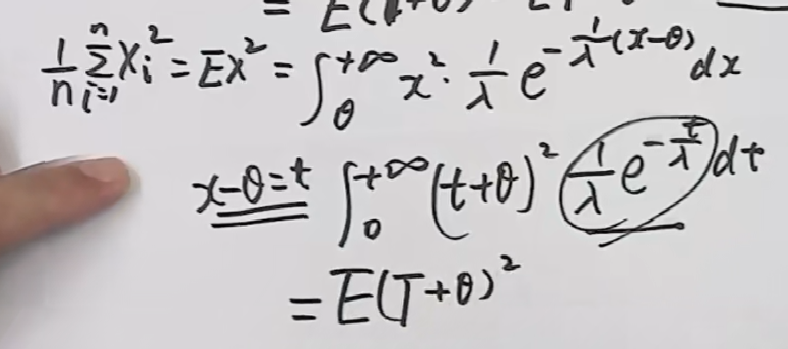 = E(T+θ)
1/n ∑_{i=1}^{n} X_i² = EX² = ∫_θ^{+∞} x² · 1/λ e^{-1/λ(x-θ)} dx
x-θ=t ∫_0^{+∞} (t+θ)² 1/λ e^{-t/λ} dt
= E(T+θ)²